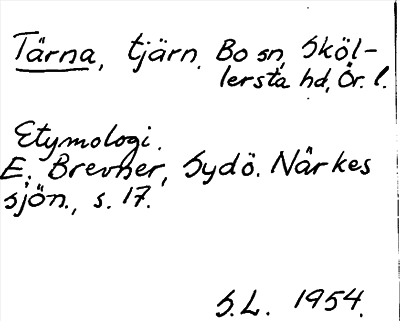 Tärna, tjärn. Bo sn, Sköl-
lersta hd, Ör. l.
Etymologi.
E. Brevner, Sydö. Närkes
sjön., s. 17.
S.L. 1954.